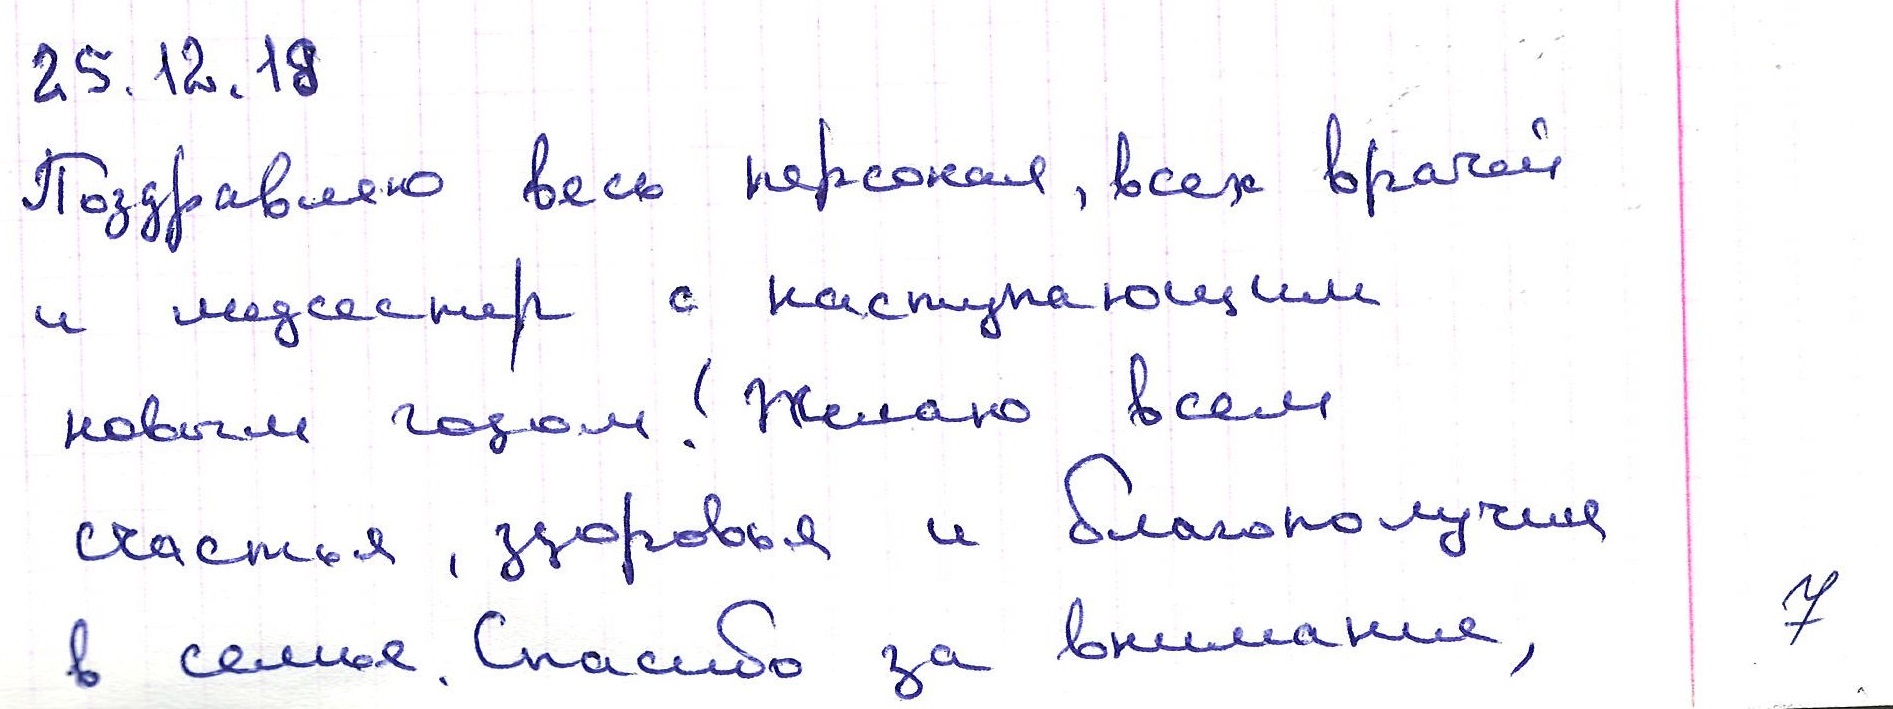 25.12.18
Поздравляю весь персонал, всех врачей
и медсестер с наступающим
новым годом! Желаю всем
счастья, здоровья и благополучия
в семье. Спасибо за внимание,
7